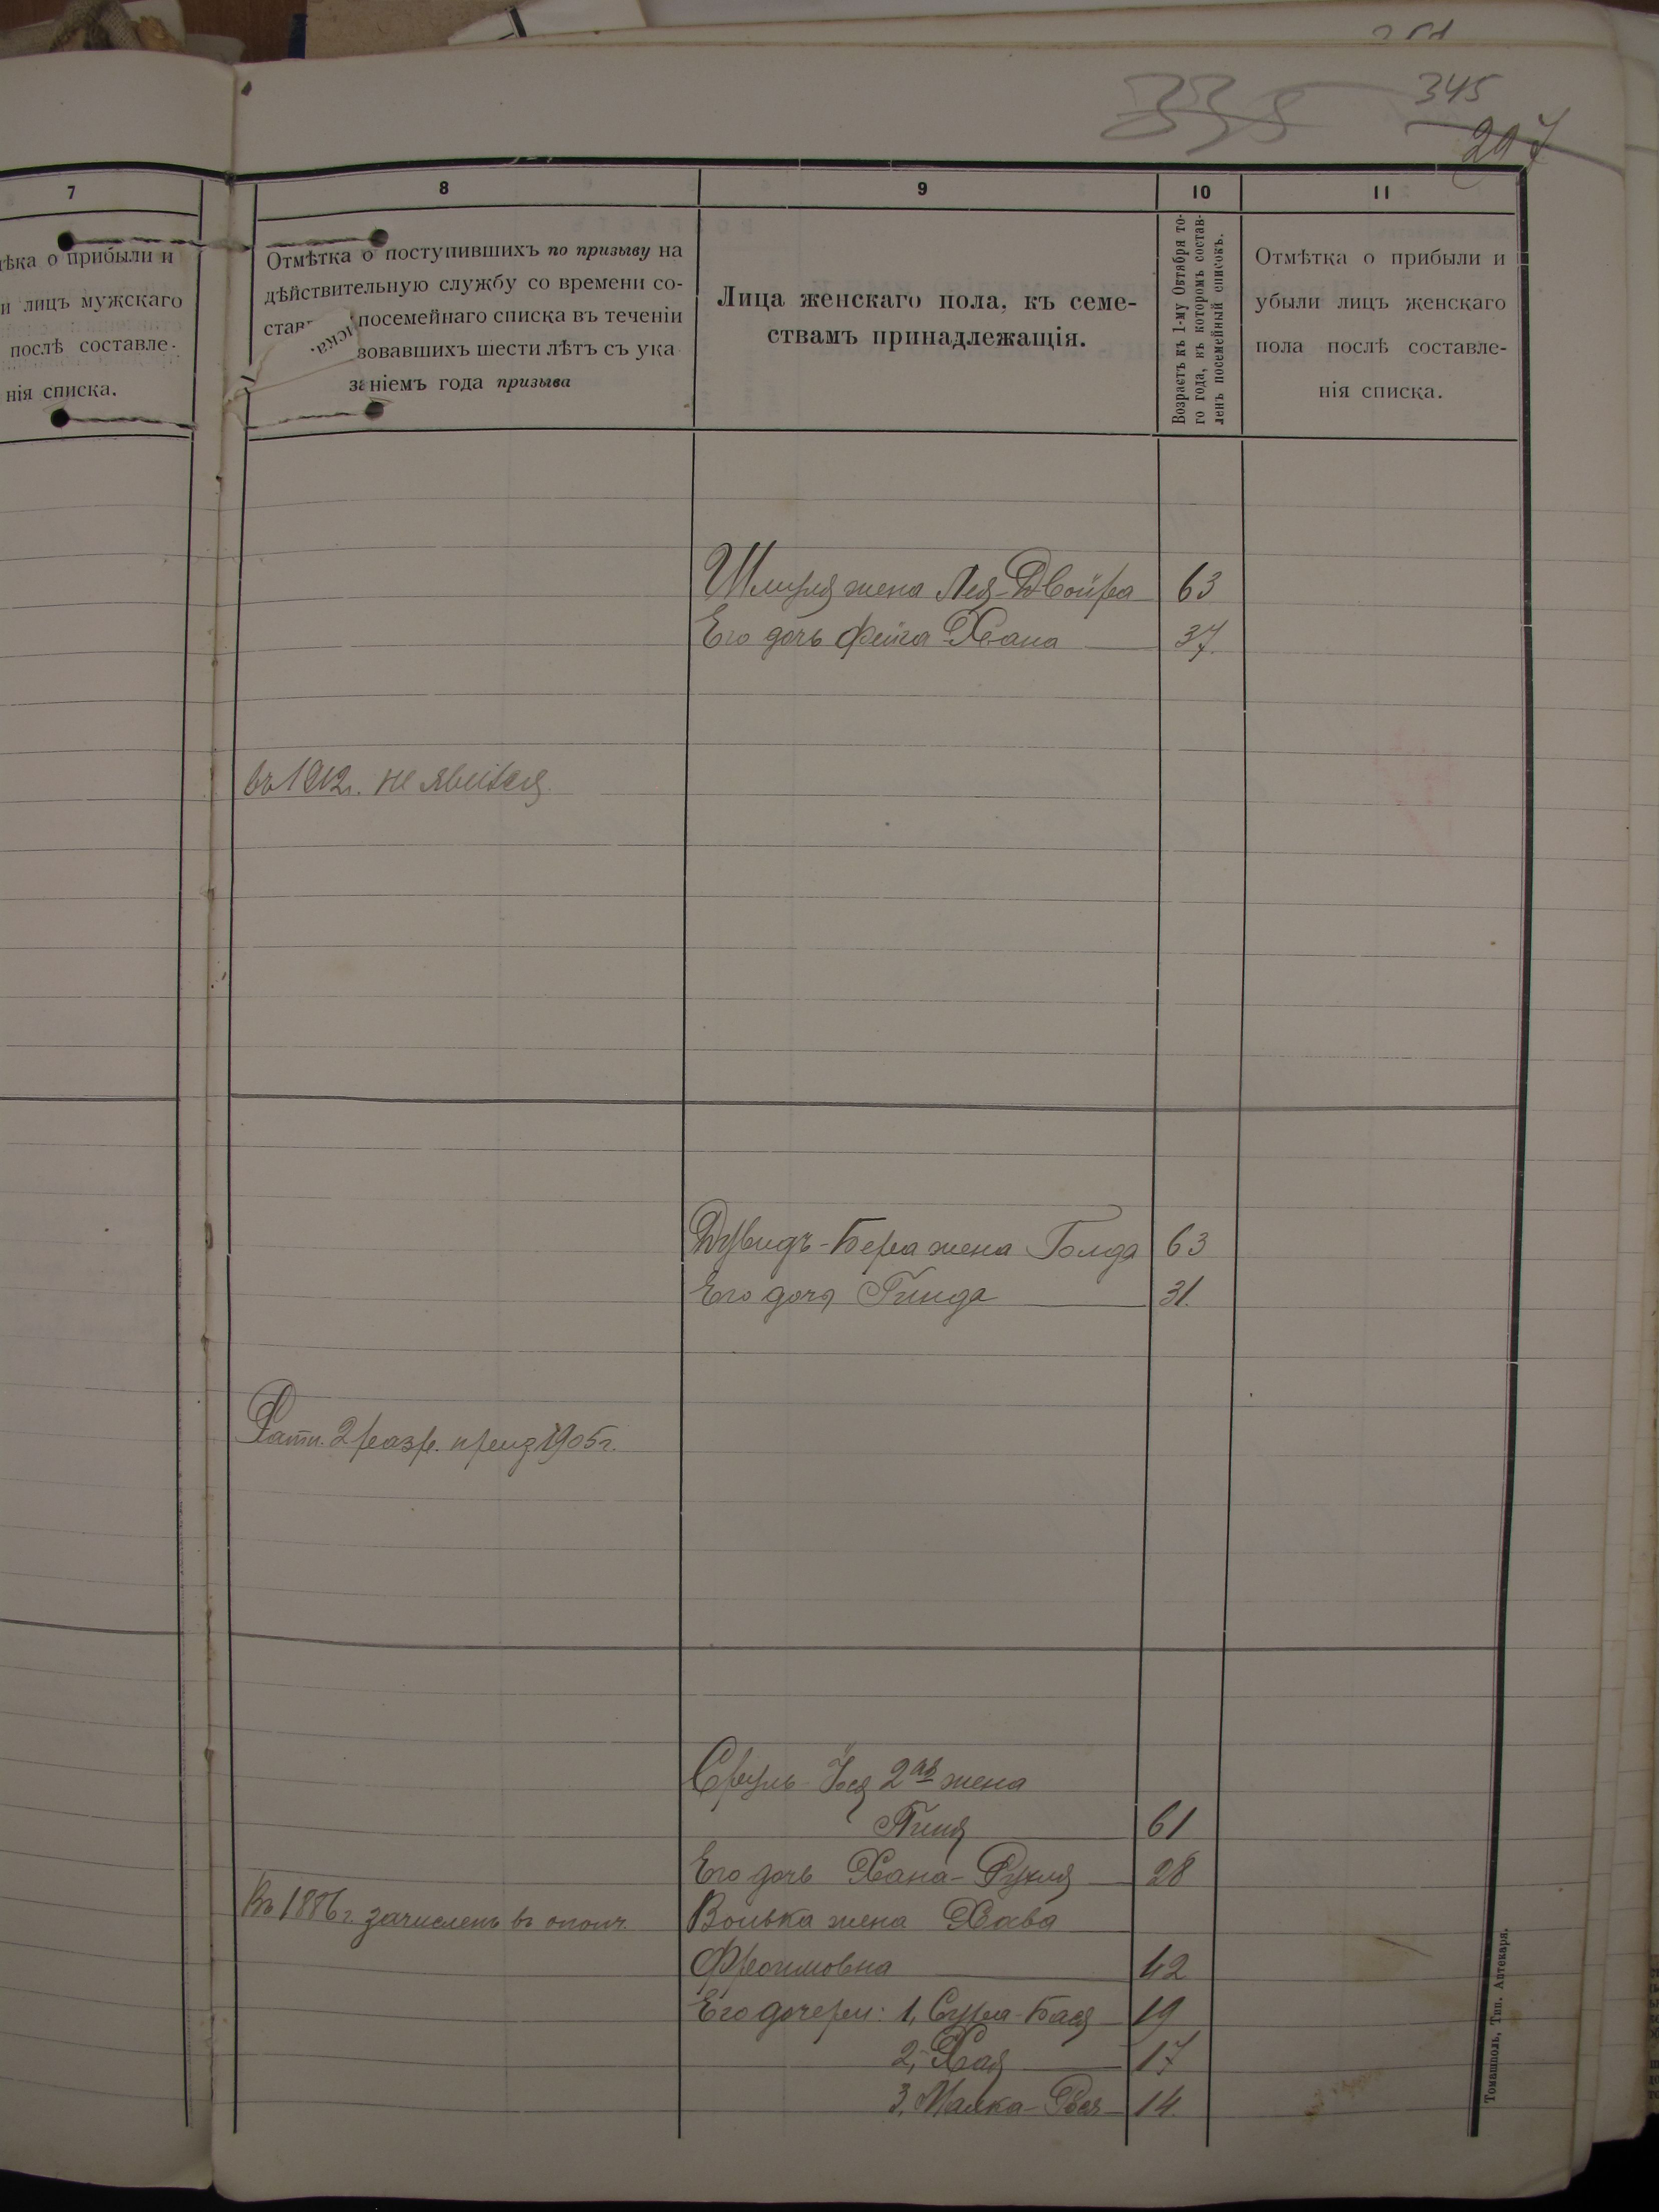 345
335
297
7
8
9
10
11
ѣка о прибыли и
и лицъ мужскаго
послѣ составле-
нія списка.
Отмѣтка о поступившихъ по призыву на
дѣйствительную службу со времени со-
став посемейнаго списка въ теченіи
зовавшихъ шести лѣтъ съ ука
заніемъ года призыва
Лица женскаго пола, къ семе-
ствамъ принадлежащія.
Возрастъ къ 1-му Октября то-
го года, къ которомъ состав-
ленъ посемейный списокъ.
Отмѣтка о прибыли и
убыли лицъ женскаго
пола послѣ составле-
нія списка.
Шмуля жена Лея-Двойра 63
Его дочь Фейга Хана 37.
въ 1912г. не явился
Дувидъ-Бера жена Голда 63
Его дочь Гинда 31.
Ратн. 2 разр. приз 1905г.
Сруль 2ая жена
61
Его дочь Хана-Рухля 28
Въ 1886г. зачисленъ въ ополч.
Волька жена Хава
Фроимовна 42
Его дочери: 1, Сура-Бася 19
2, Хая 17
3, Малка-Рося 14.
Томашполь, Тип. Аптекаря.